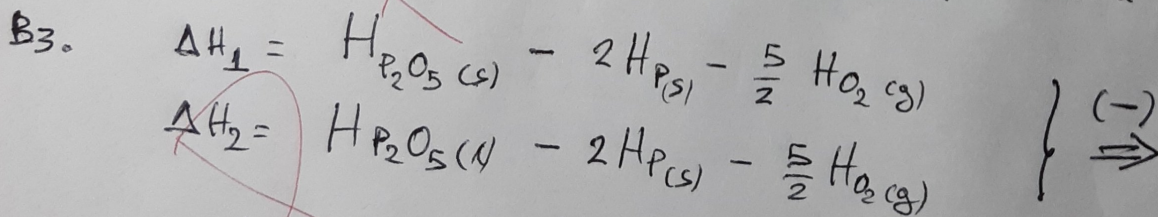 B3. ΔH₁ = H P₂O₅ (s) - 2H P(s) - 5/2 H O₂ (g)
ΔH₂ = H P₂O₅ (l) - 2H P(s) - 5/2 H O₂ (g) } (-) ⇒